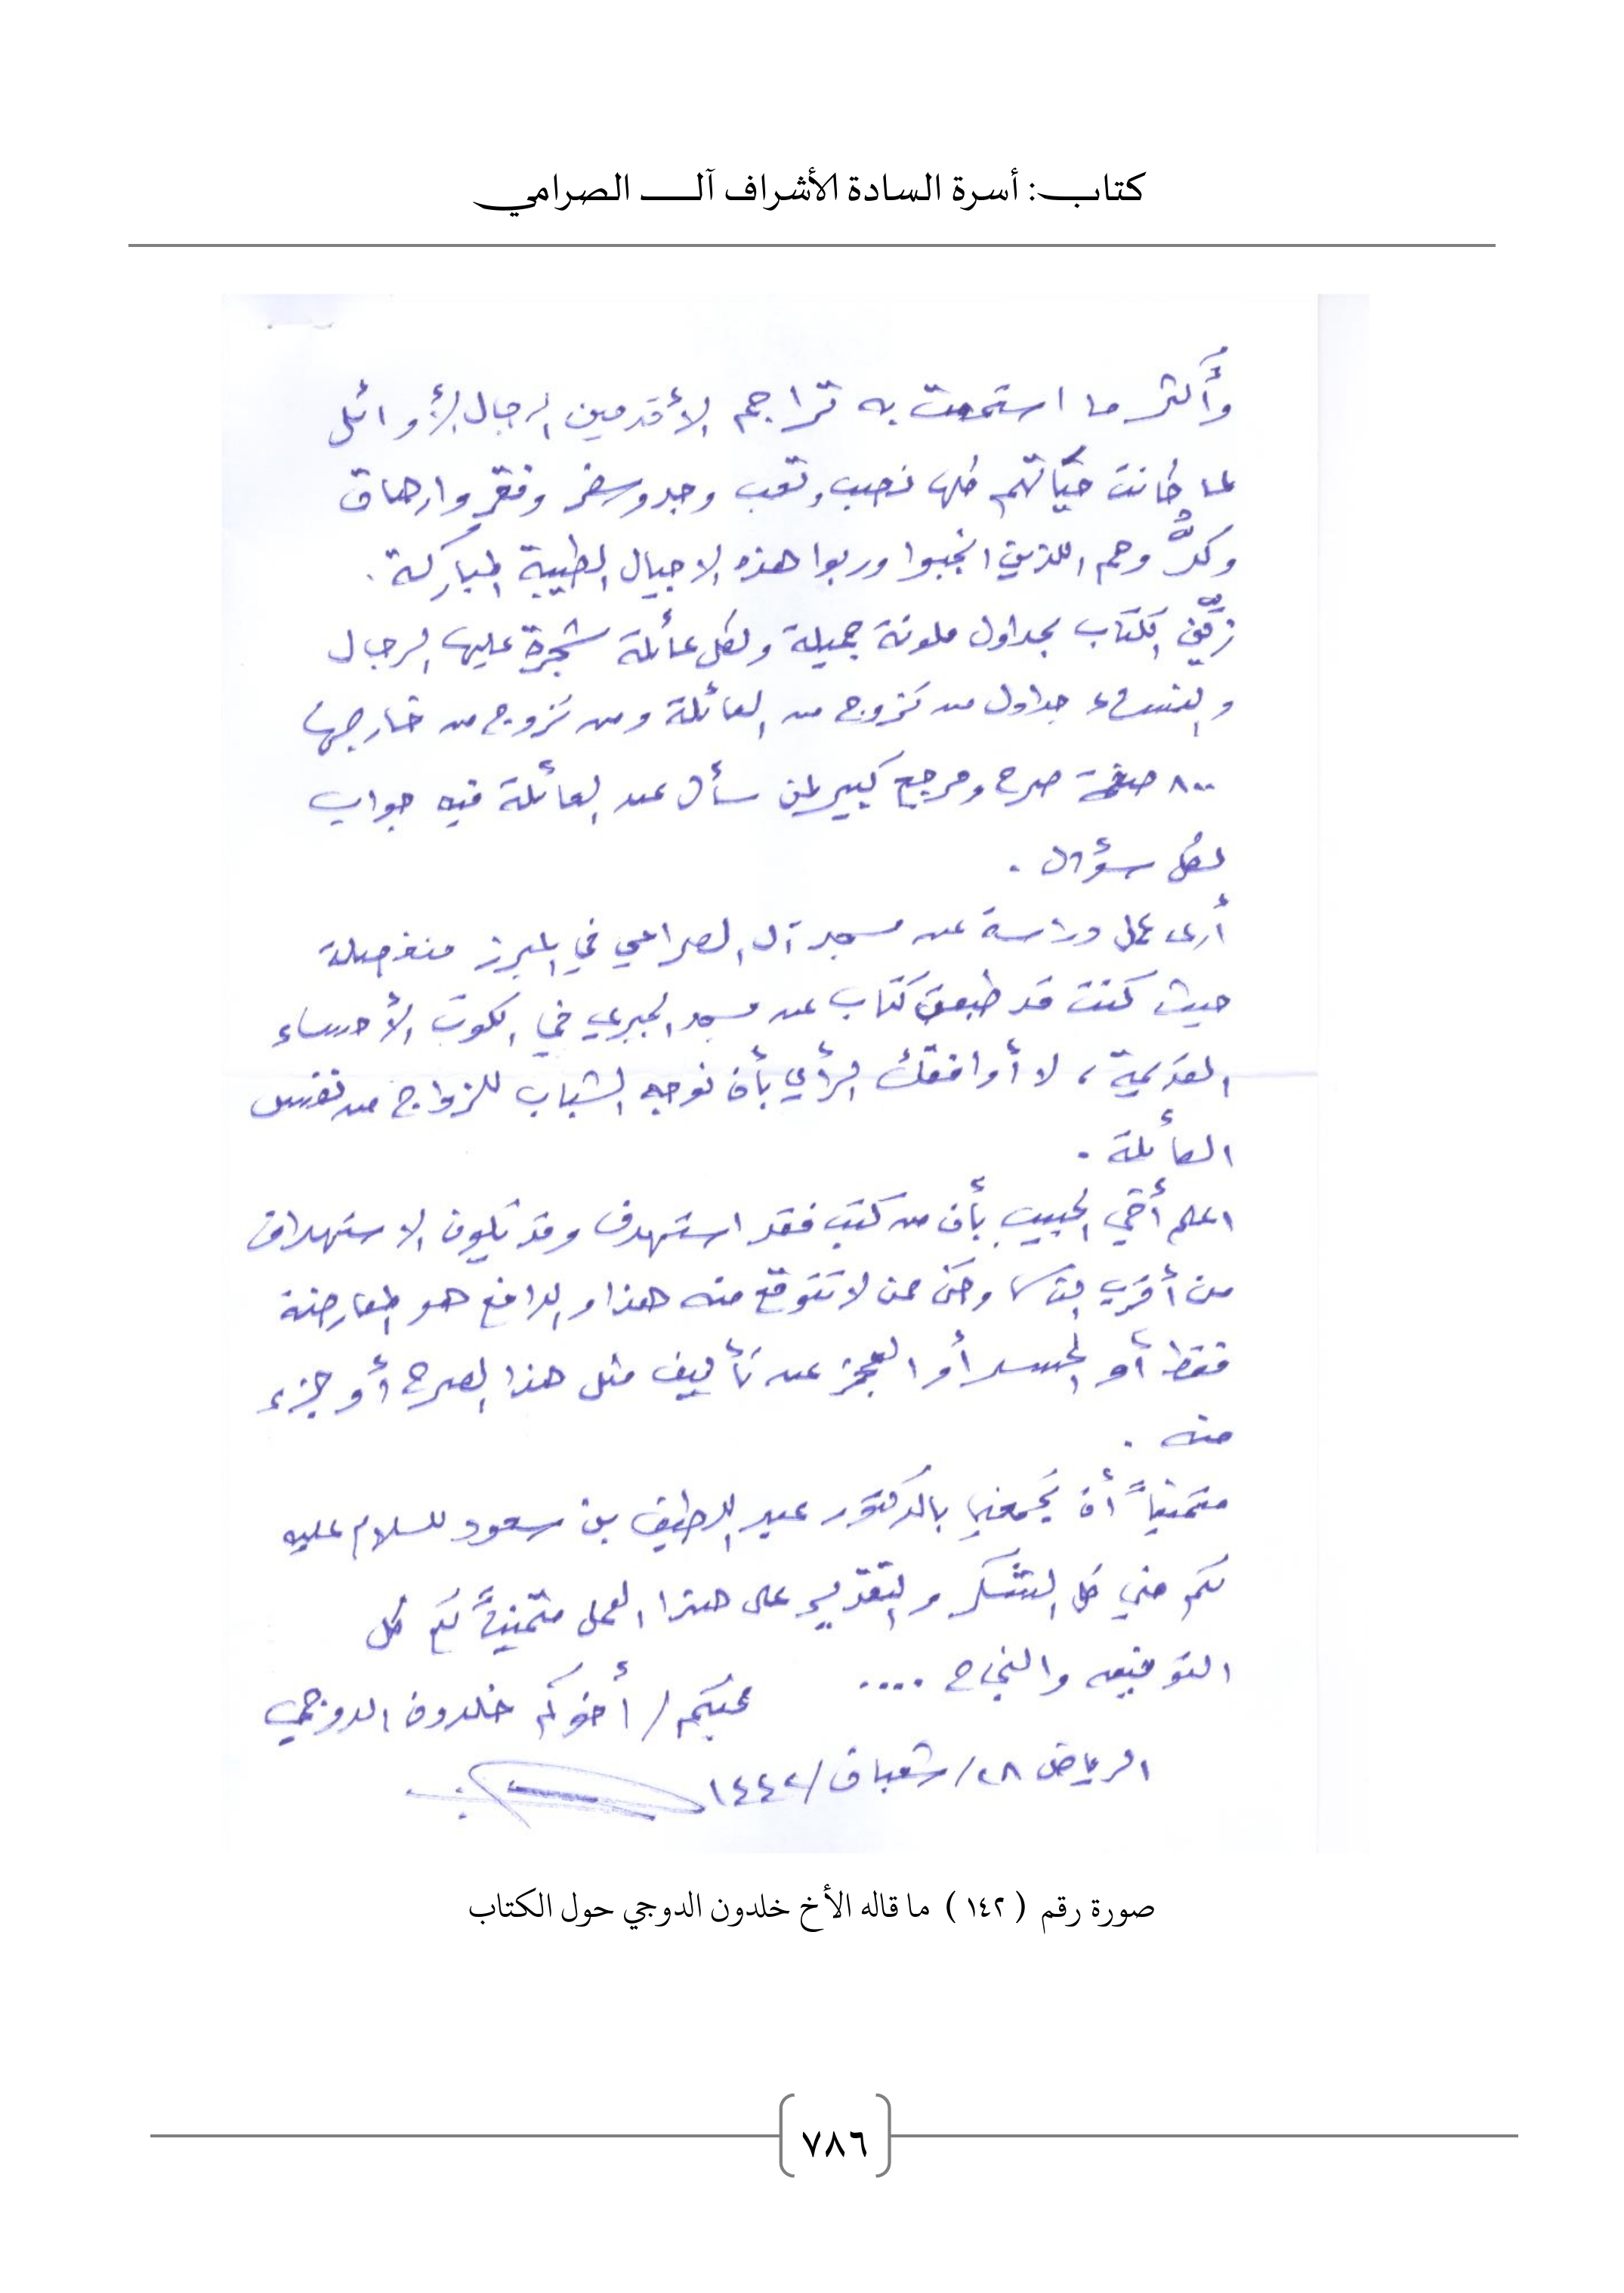 كتاب: أسرة السادة الأشراف آل الصرامي
وأكثر ما استمتعت به تراجم الأقدمين الرجال الأوائل
لما كانت حياتهم كلها نصب وتعب وجد وسفر وفقر وارهاق
وكدٌّ وهم اللذين انجبوا وربوا هذه الاجيال الطيبة المباركة .
الكتاب بجداول ملونة جميلة ولكل عائلة شجرة عليها الرجال
والنساء جداول من تزوج من العائلة ومن تزوج من خارجها
٨٠٠ صفحة صرح ومرجع كبير لمن سأل عن العائلة فيه جواب
لكل سؤال .
أرى عمل دراسة عن مسجد آل الصرامي في المبرز منفصلة
حيث كنت قد طبعت كتاب عن مسجد الجبري في الكوت الأحساء
القديمة ، لا أوافقك الرأي بأن نوجه الشباب للزواج من نفس
العائلة .
اعلم أخي الحبيب بأن من كتب فقد استهدف وقد تكون الاستهداف
من أقرب الناس وحتى ممن لا تتوقع منه هذا والدافع هو المعارضة
فقط أو الحسد أو العجز عن تأليف مثل هذا الصرح أو جزء
منه .
متمنياً أن يجمعني بالدكتور عبد اللطيف بن سعود للسلام عليه
لكم مني كل الشكر والتقدير على هذا العمل متمنياً لكم كل
التوفيق والنجاح ....
محبكم / أخوكم خلدون الدوجي
الرياض ٢٨/شعبان/١٤٤٢
صورة رقم ( ١٤٢ ) ما قاله الأخ خلدون الدوجي حول الكتاب
٧٨٦